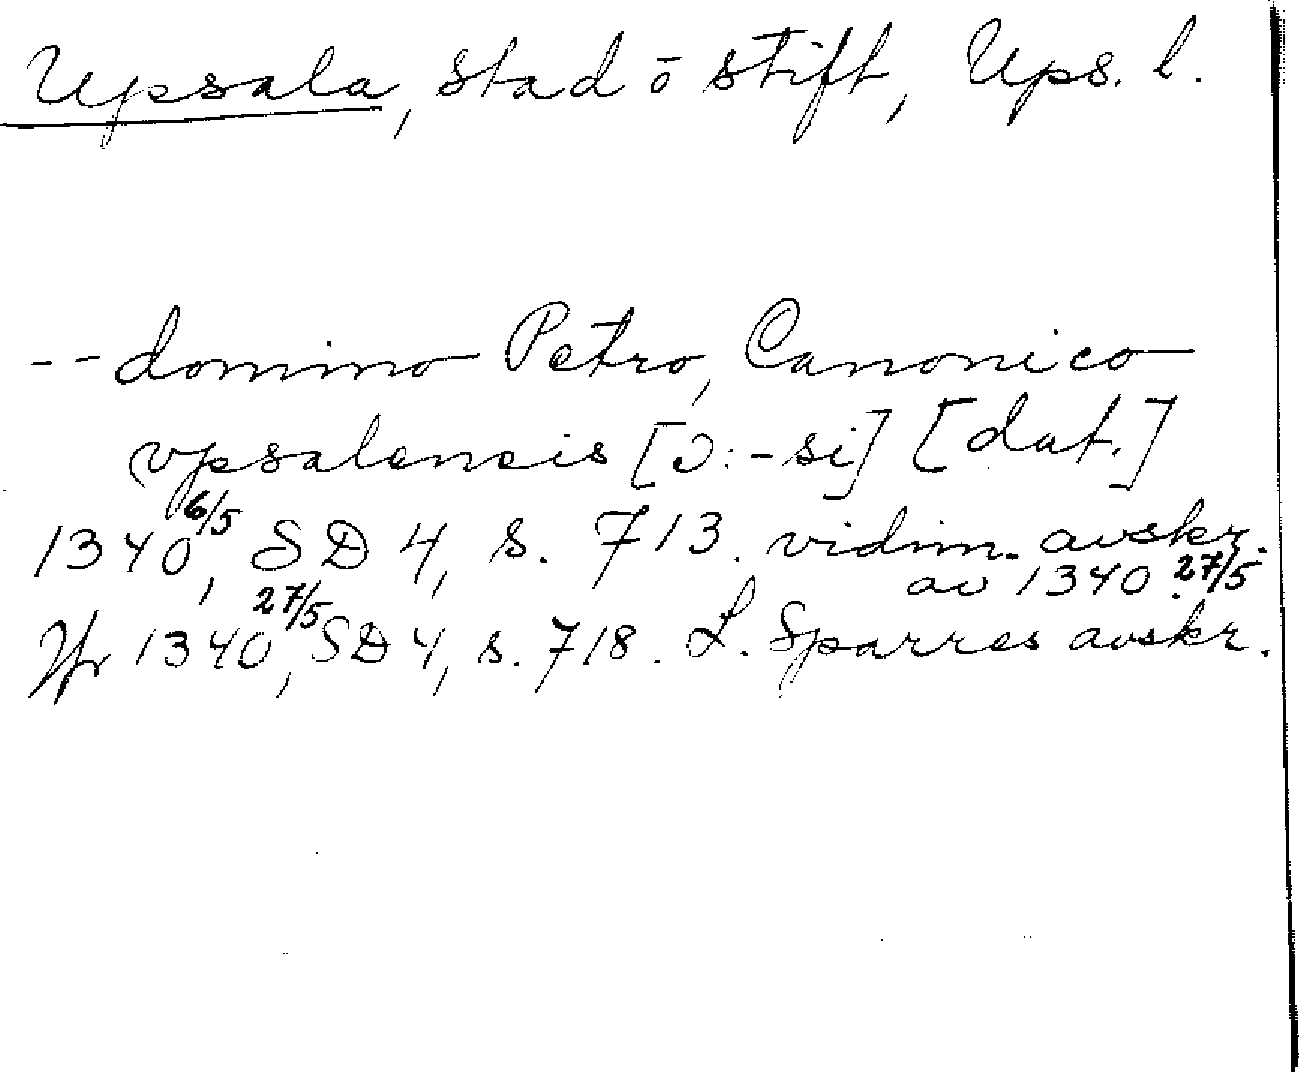 Upsala, stad ō stift, Ups. l.
-- domino Petro, Canonico
vpsalensis [ɔ: -si] [dat.]
1340 6/5, SD 4, s. 713. vidim. avskr.
av 1340 27/5.
Jfr 1340 27/5, SD 4, s. 718. L. Sparres avskr.